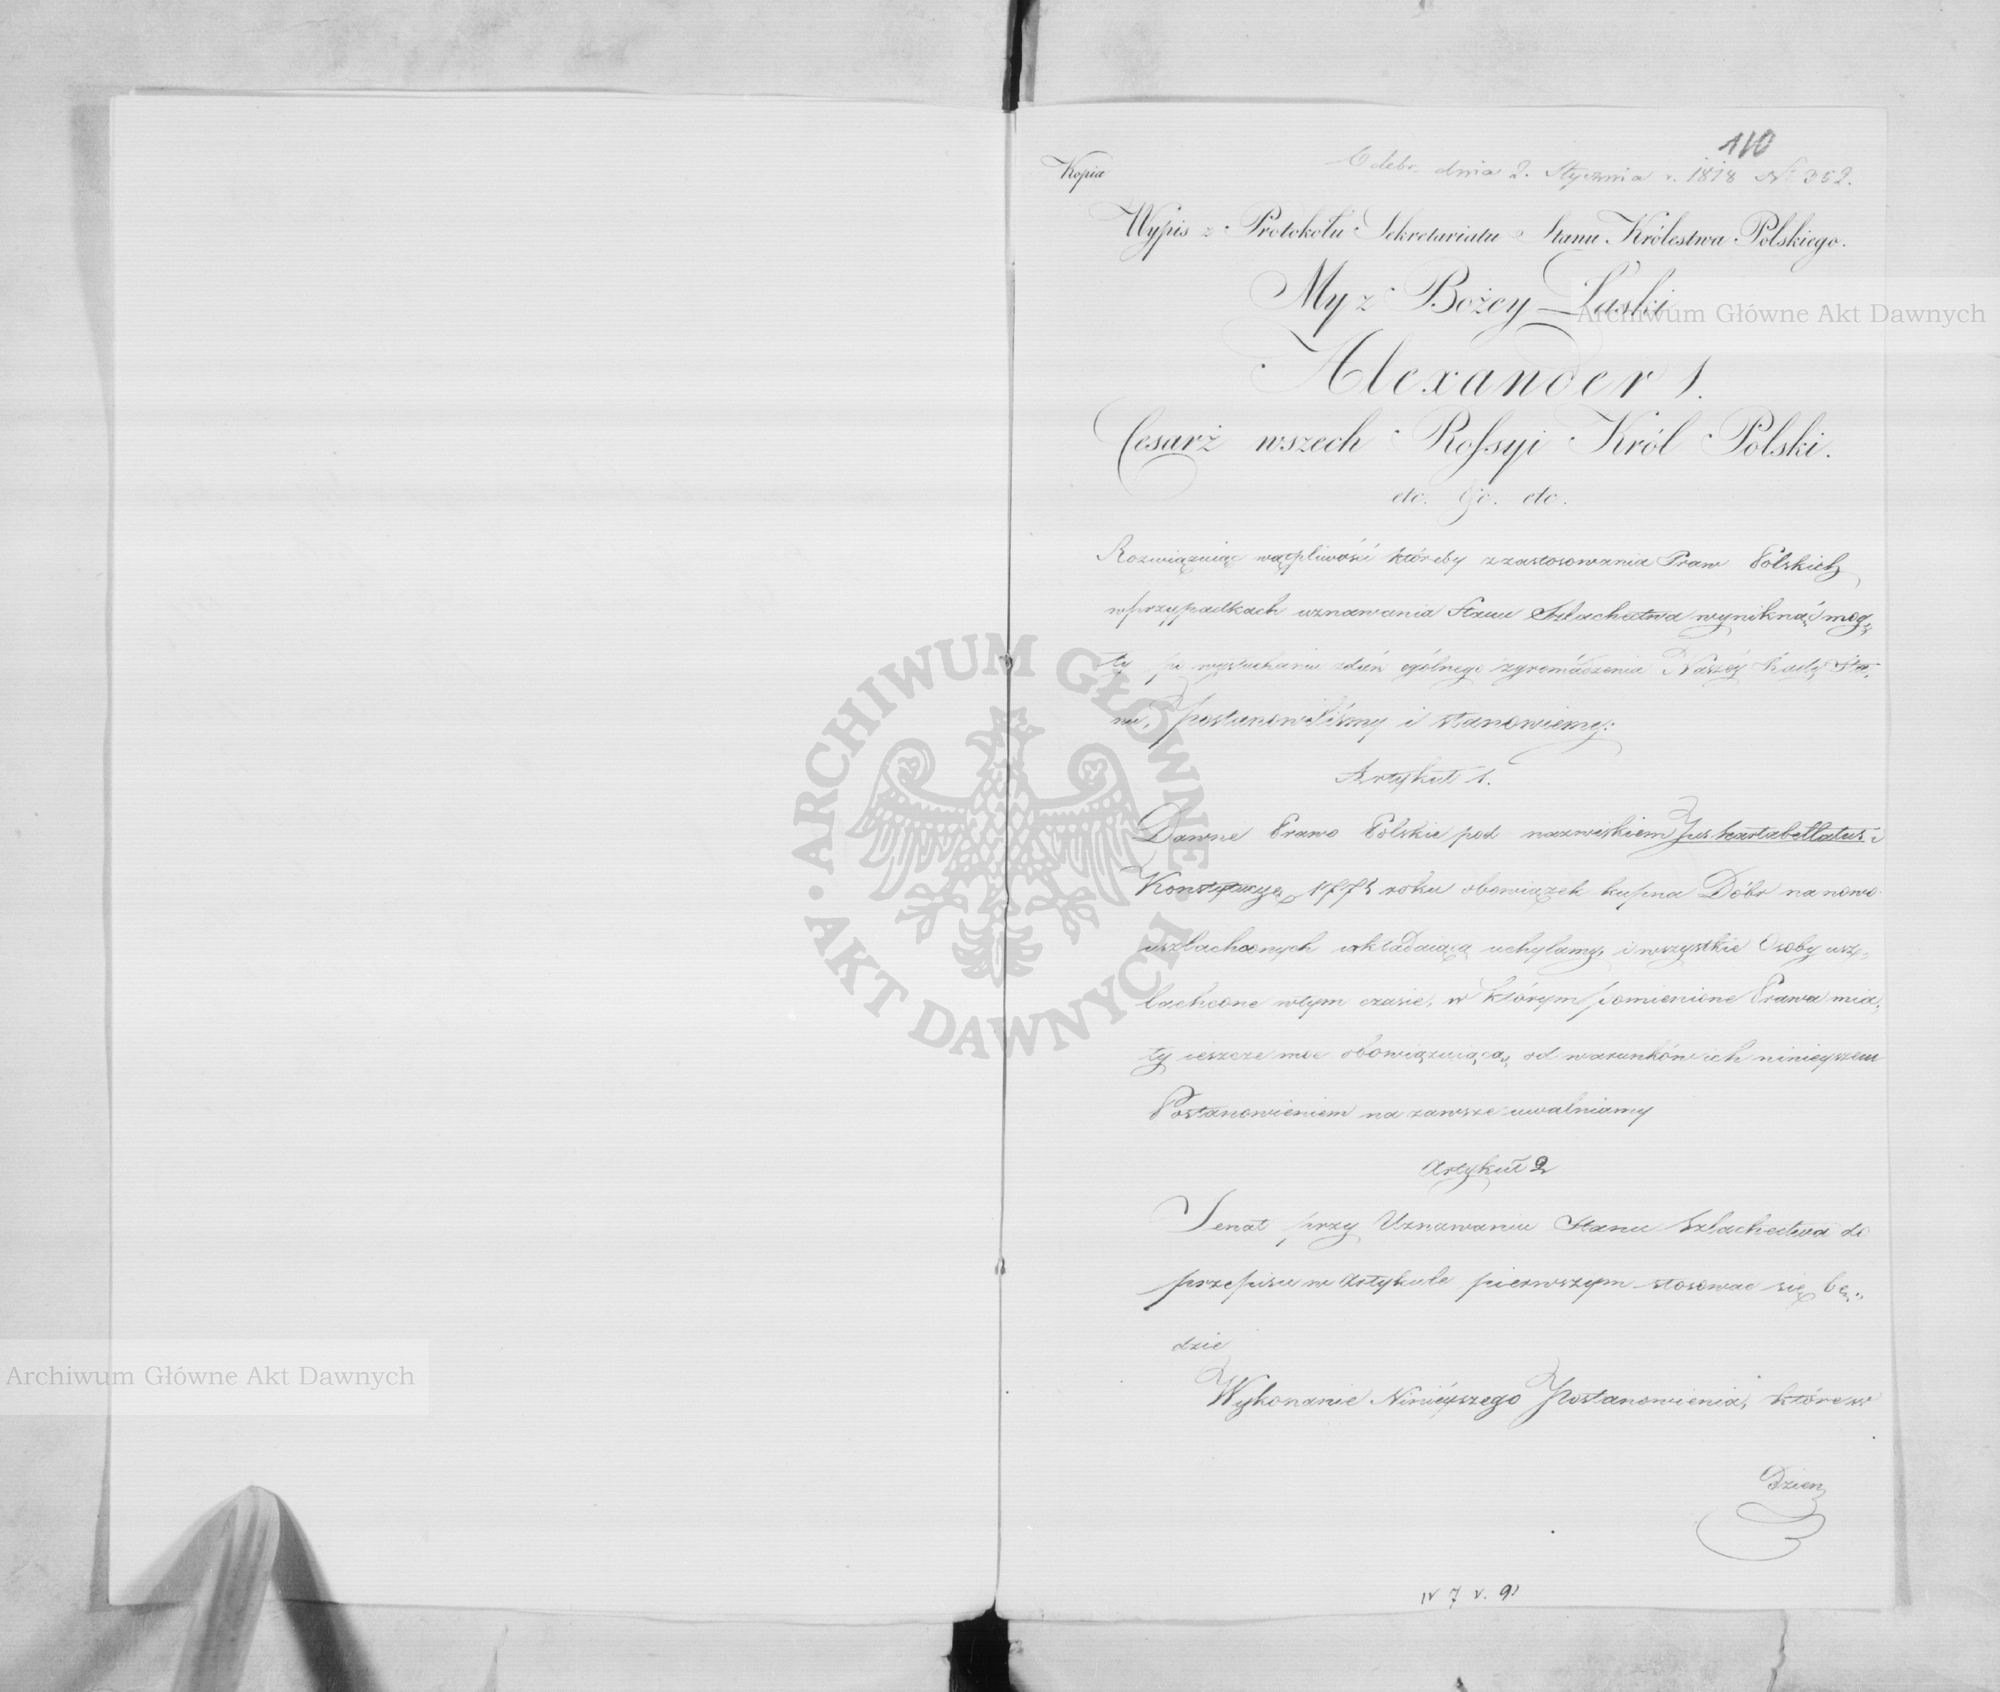 110
Kopia
Odebr. dnia 2. Stycznia r. 1818 No 352.
Wypis z Protokołu Sekretariatu Stanu Królestwa Polskiego.
My z Bożey Łaski
Alexander 1.
Cesarż wszech Rossyi Król Polski.
etc. &c. etc.
Rozwiązuiąc wątpliwości któreby z zastosowania Praw Polskich
w przypadkach uznawania Stanu Szlachectwa wyniknąć mog„
ły po wysłuchaniu zdań ogólnego zgromadzenia Naszéy Rady Sta„
nu, postanowiliśmy i stanowiemy:
Artykuł 1.
Dawne Prawo Polskie pod nazwiskiem Jus kartabellatus i
Konstytucyą 1775 roku obowiązek kupna Dóbr na nowo
uszlachconych wkładaiącą uchylamy, i wszystkie Osoby usz„
lachcone w tym czasie, w którym pomienione Prawa mia„
ły ieszcze moc obowiązuiącą, od warunków ich ninieyszem
Postanowieniem na zawsze uwalniamy
Artykuł 2
Senat przy Uznawaniu Stanu Szlachectwa do
przepisu w Artykule pierwszym stosować się bę„
dzie
Wykonanie Ninieyszego Postanowienia, które w
Dzien
IV 7 v. 91
Archiwum Główne Akt Dawnych
Archiwum Główne Akt Dawnych
ARCHIWUM GŁÓWNE AKT DAWNYCH